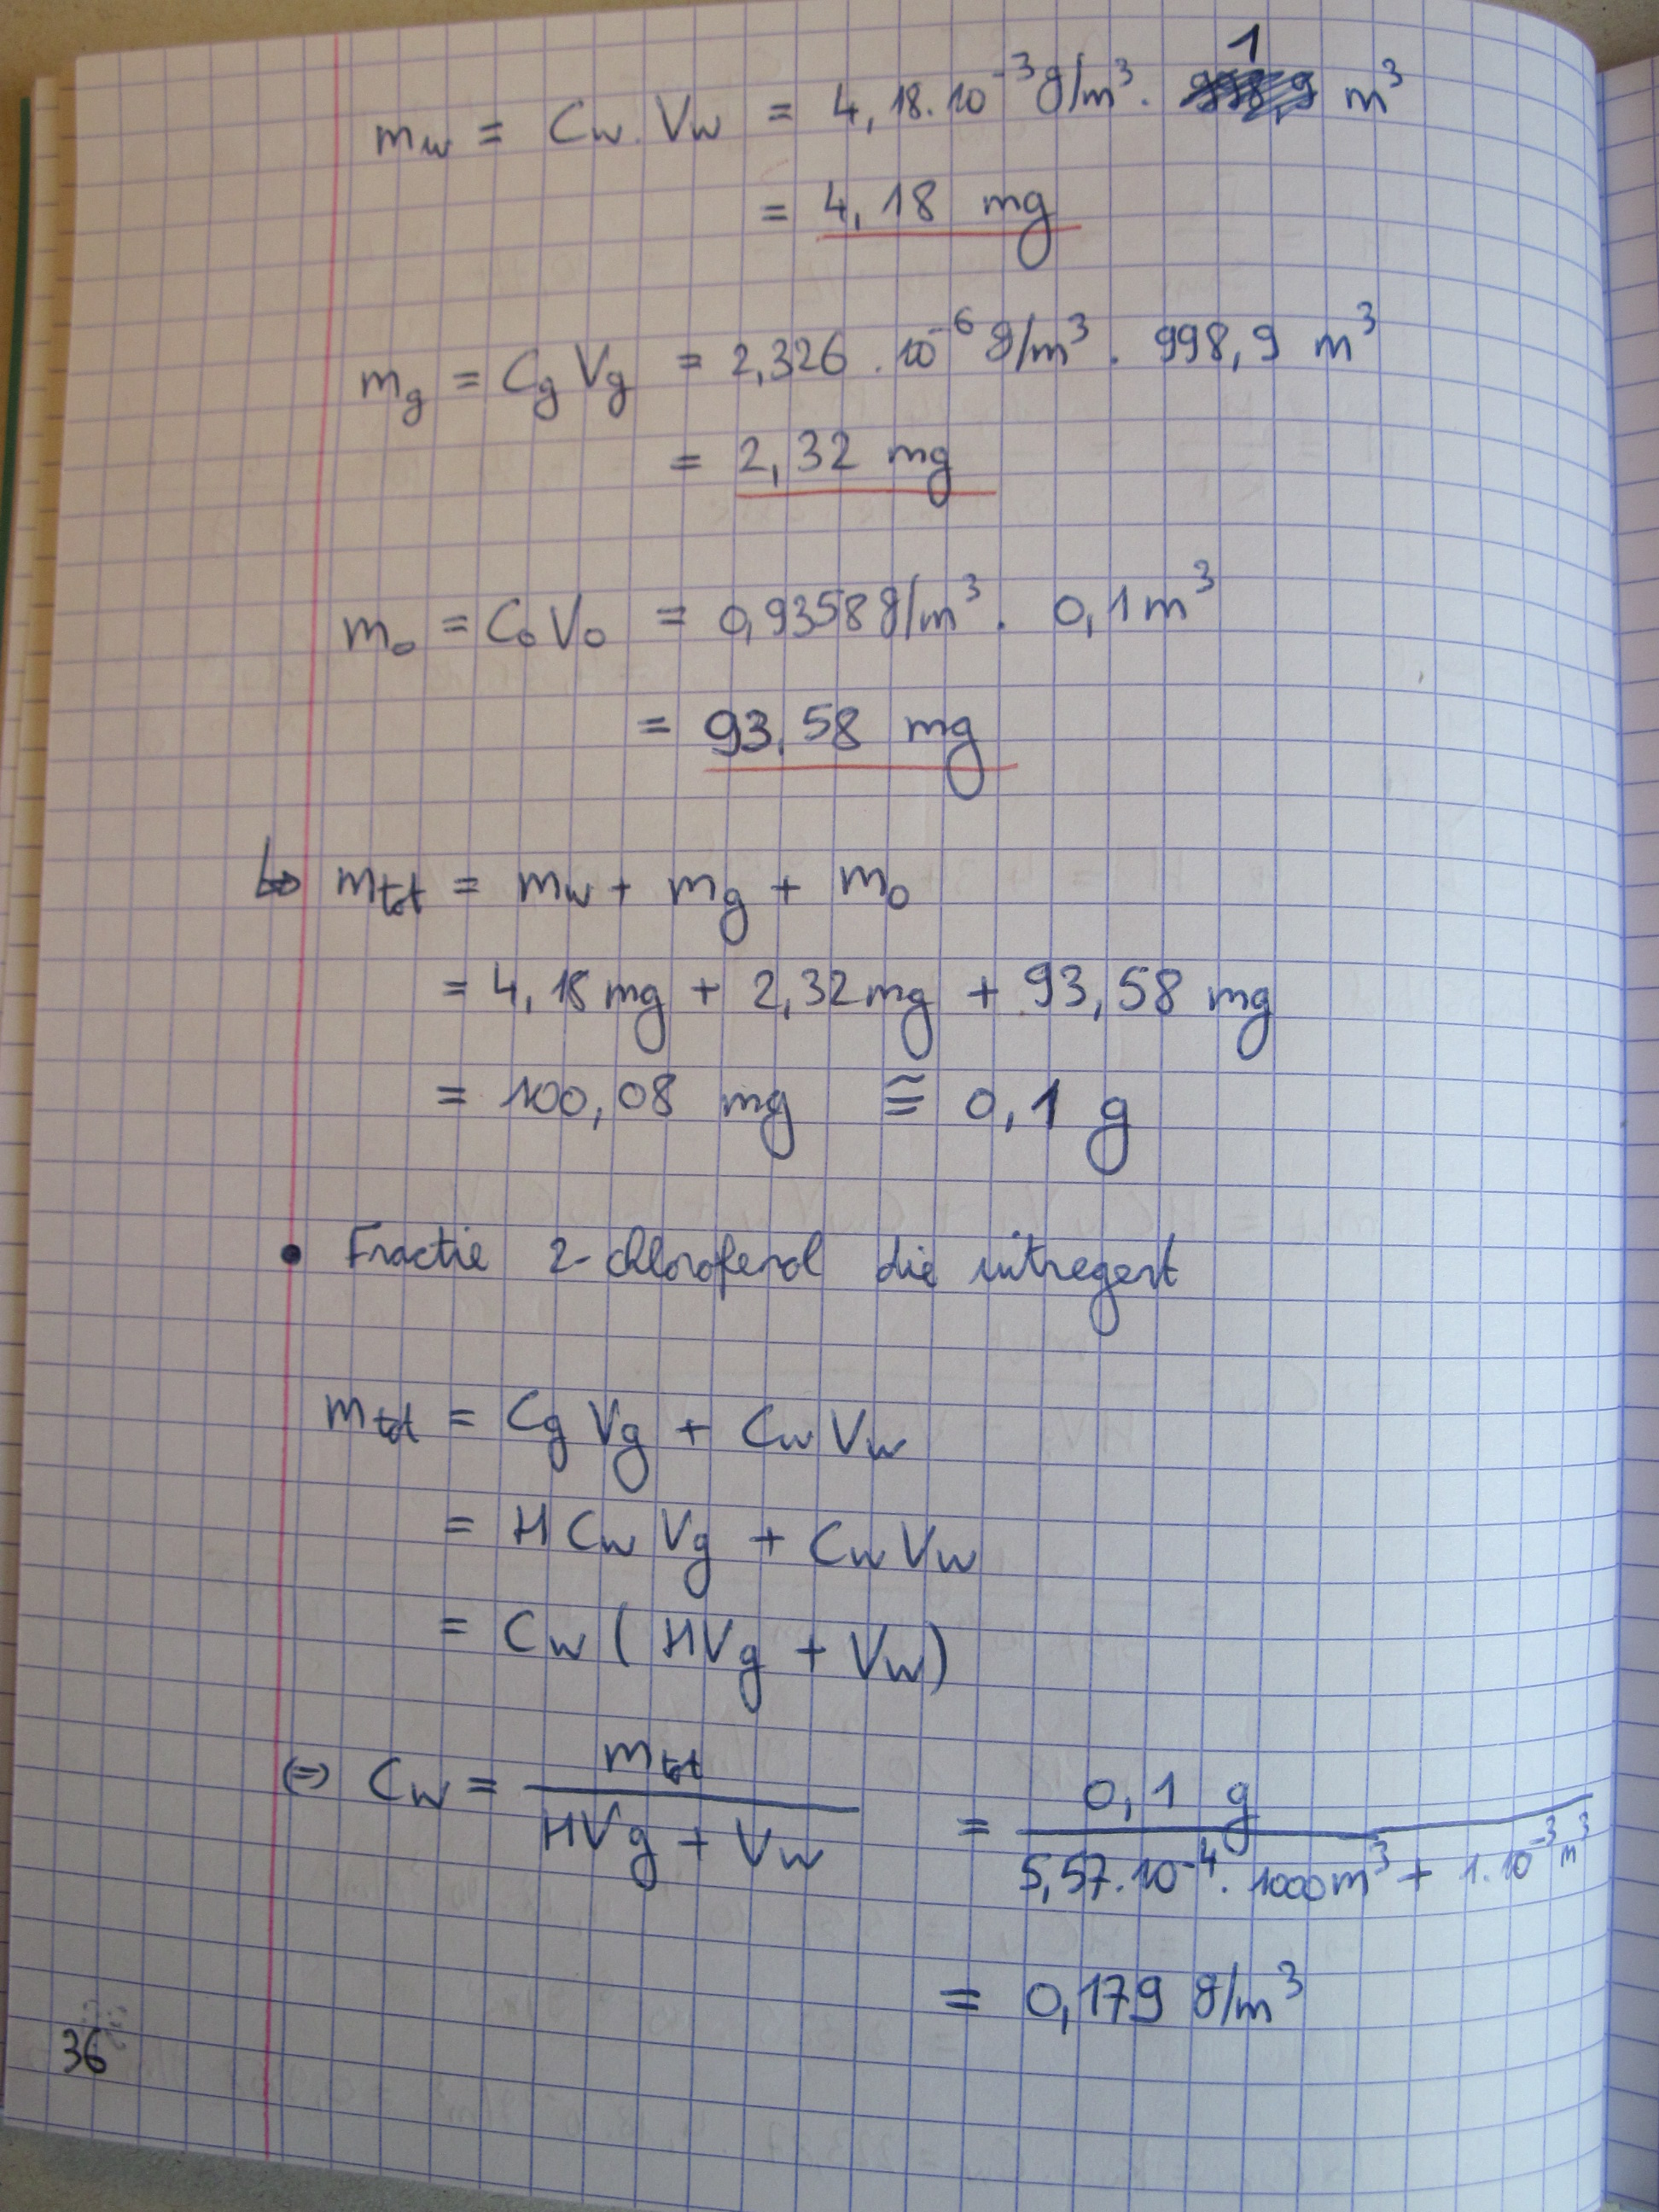 m_w = C_w . V_w = 4,18.10⁻³ g/m³ . 1 m³
= 4,18 mg
m_g = C_g V_g = 2,326 . 10⁻⁶ g/m³ . 998,9 m³
= 2,32 mg
m_o = C_o V_o = 0,9358 g/m³ . 0,1 m³
= 93,58 mg
↳ m_tot = m_w + m_g + m_o
= 4,18 mg + 2,32 mg + 93,58 mg
= 100,08 mg ≅ 0,1 g
• Fractie 2-chlorofenol die uitregent
m_tot = C_g V_g + C_w V_w
= H C_w V_g + C_w V_w
= C_w ( H V_g + V_w )
⇔ C_w = m_tot / (H V_g + V_w) = 0,1 g / (5,57.10⁻⁴ . 1000 m³ + 1.10⁻³ m³)
= 0,179 g/m³
36